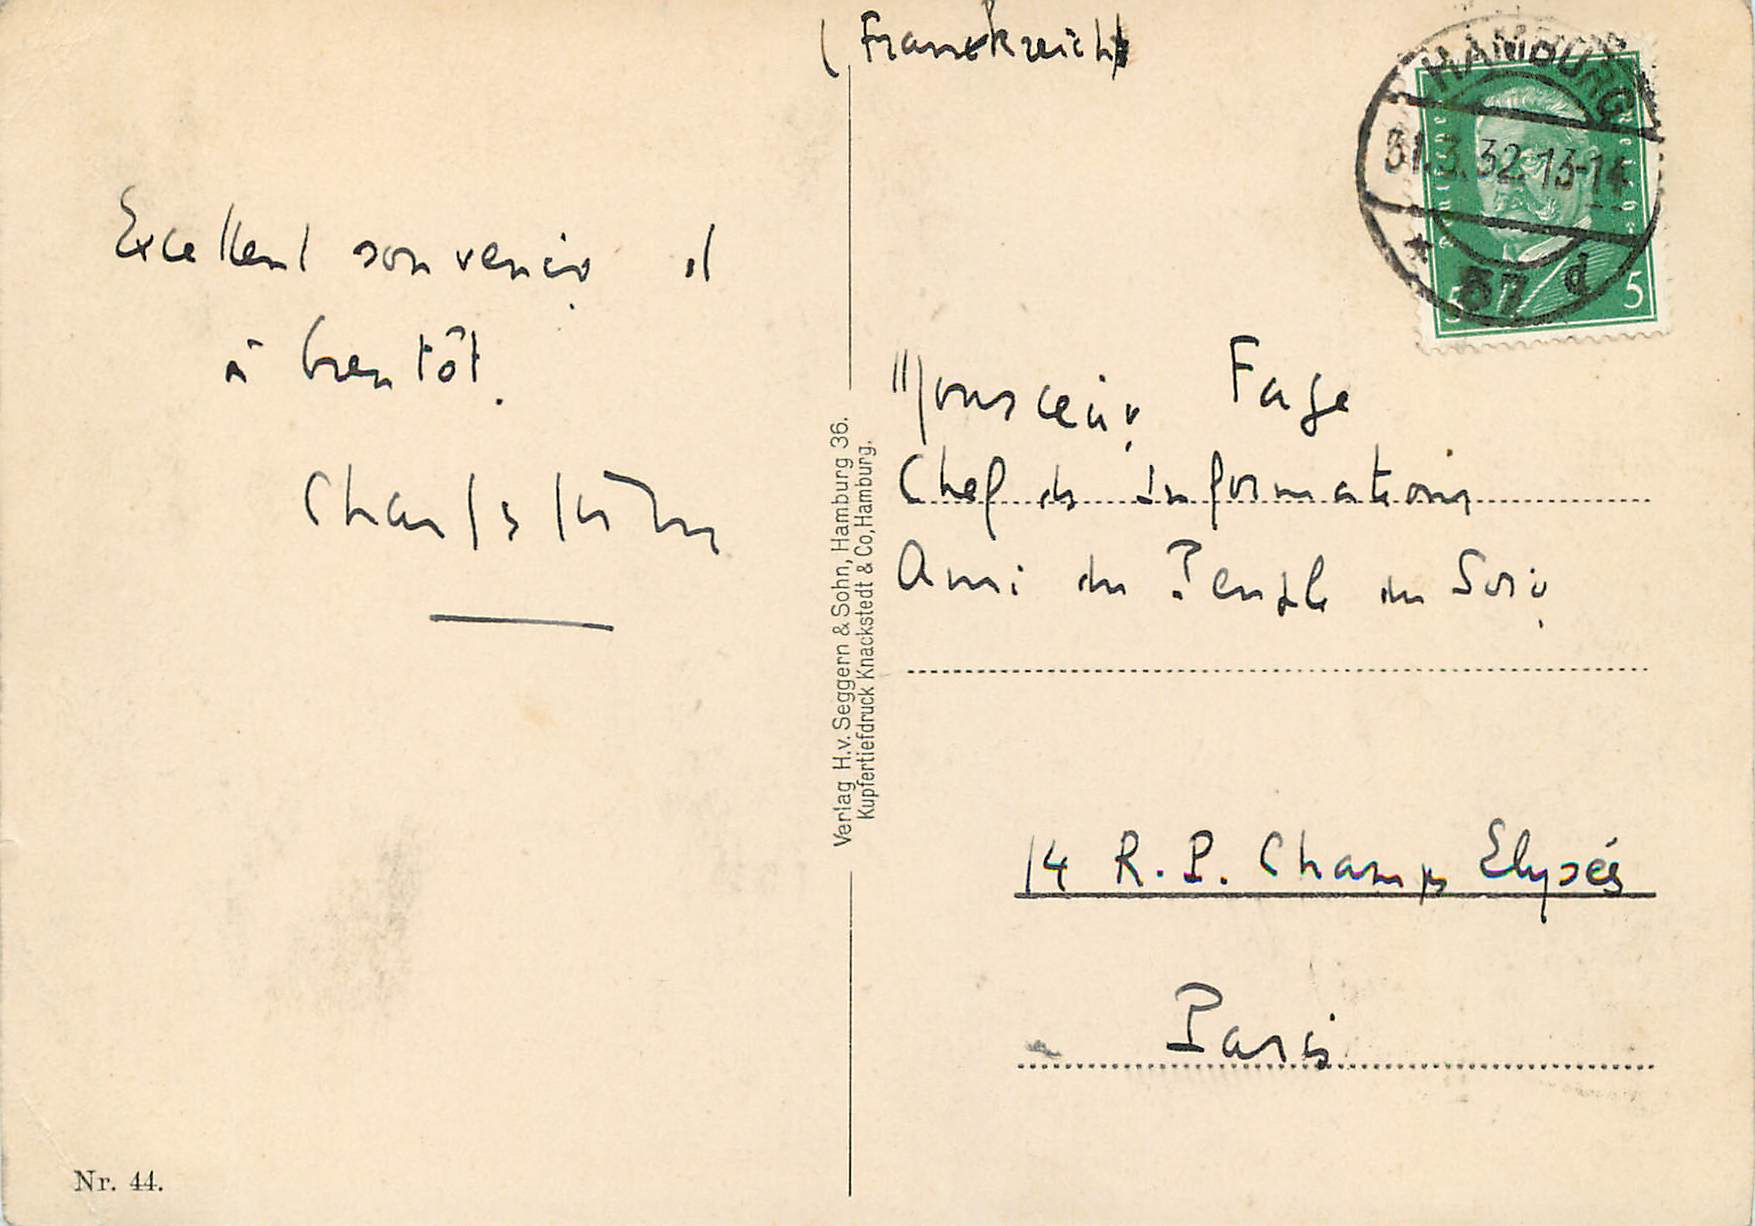 (Frankreich)
HAMBURG
31.3.32.13-14
* 37 d
5 5
Excellent souvenir et
à bientôt.
Monsieur Fage
Chef des Informations
Ami du Peuple du Soir
14 R.P. Champs Elysés
Paris
Verlag H.v. Seggern & Sohn, Hamburg 36.
Kupfertiefdruck Knackstedt & Co, Hamburg.
Nr. 44.